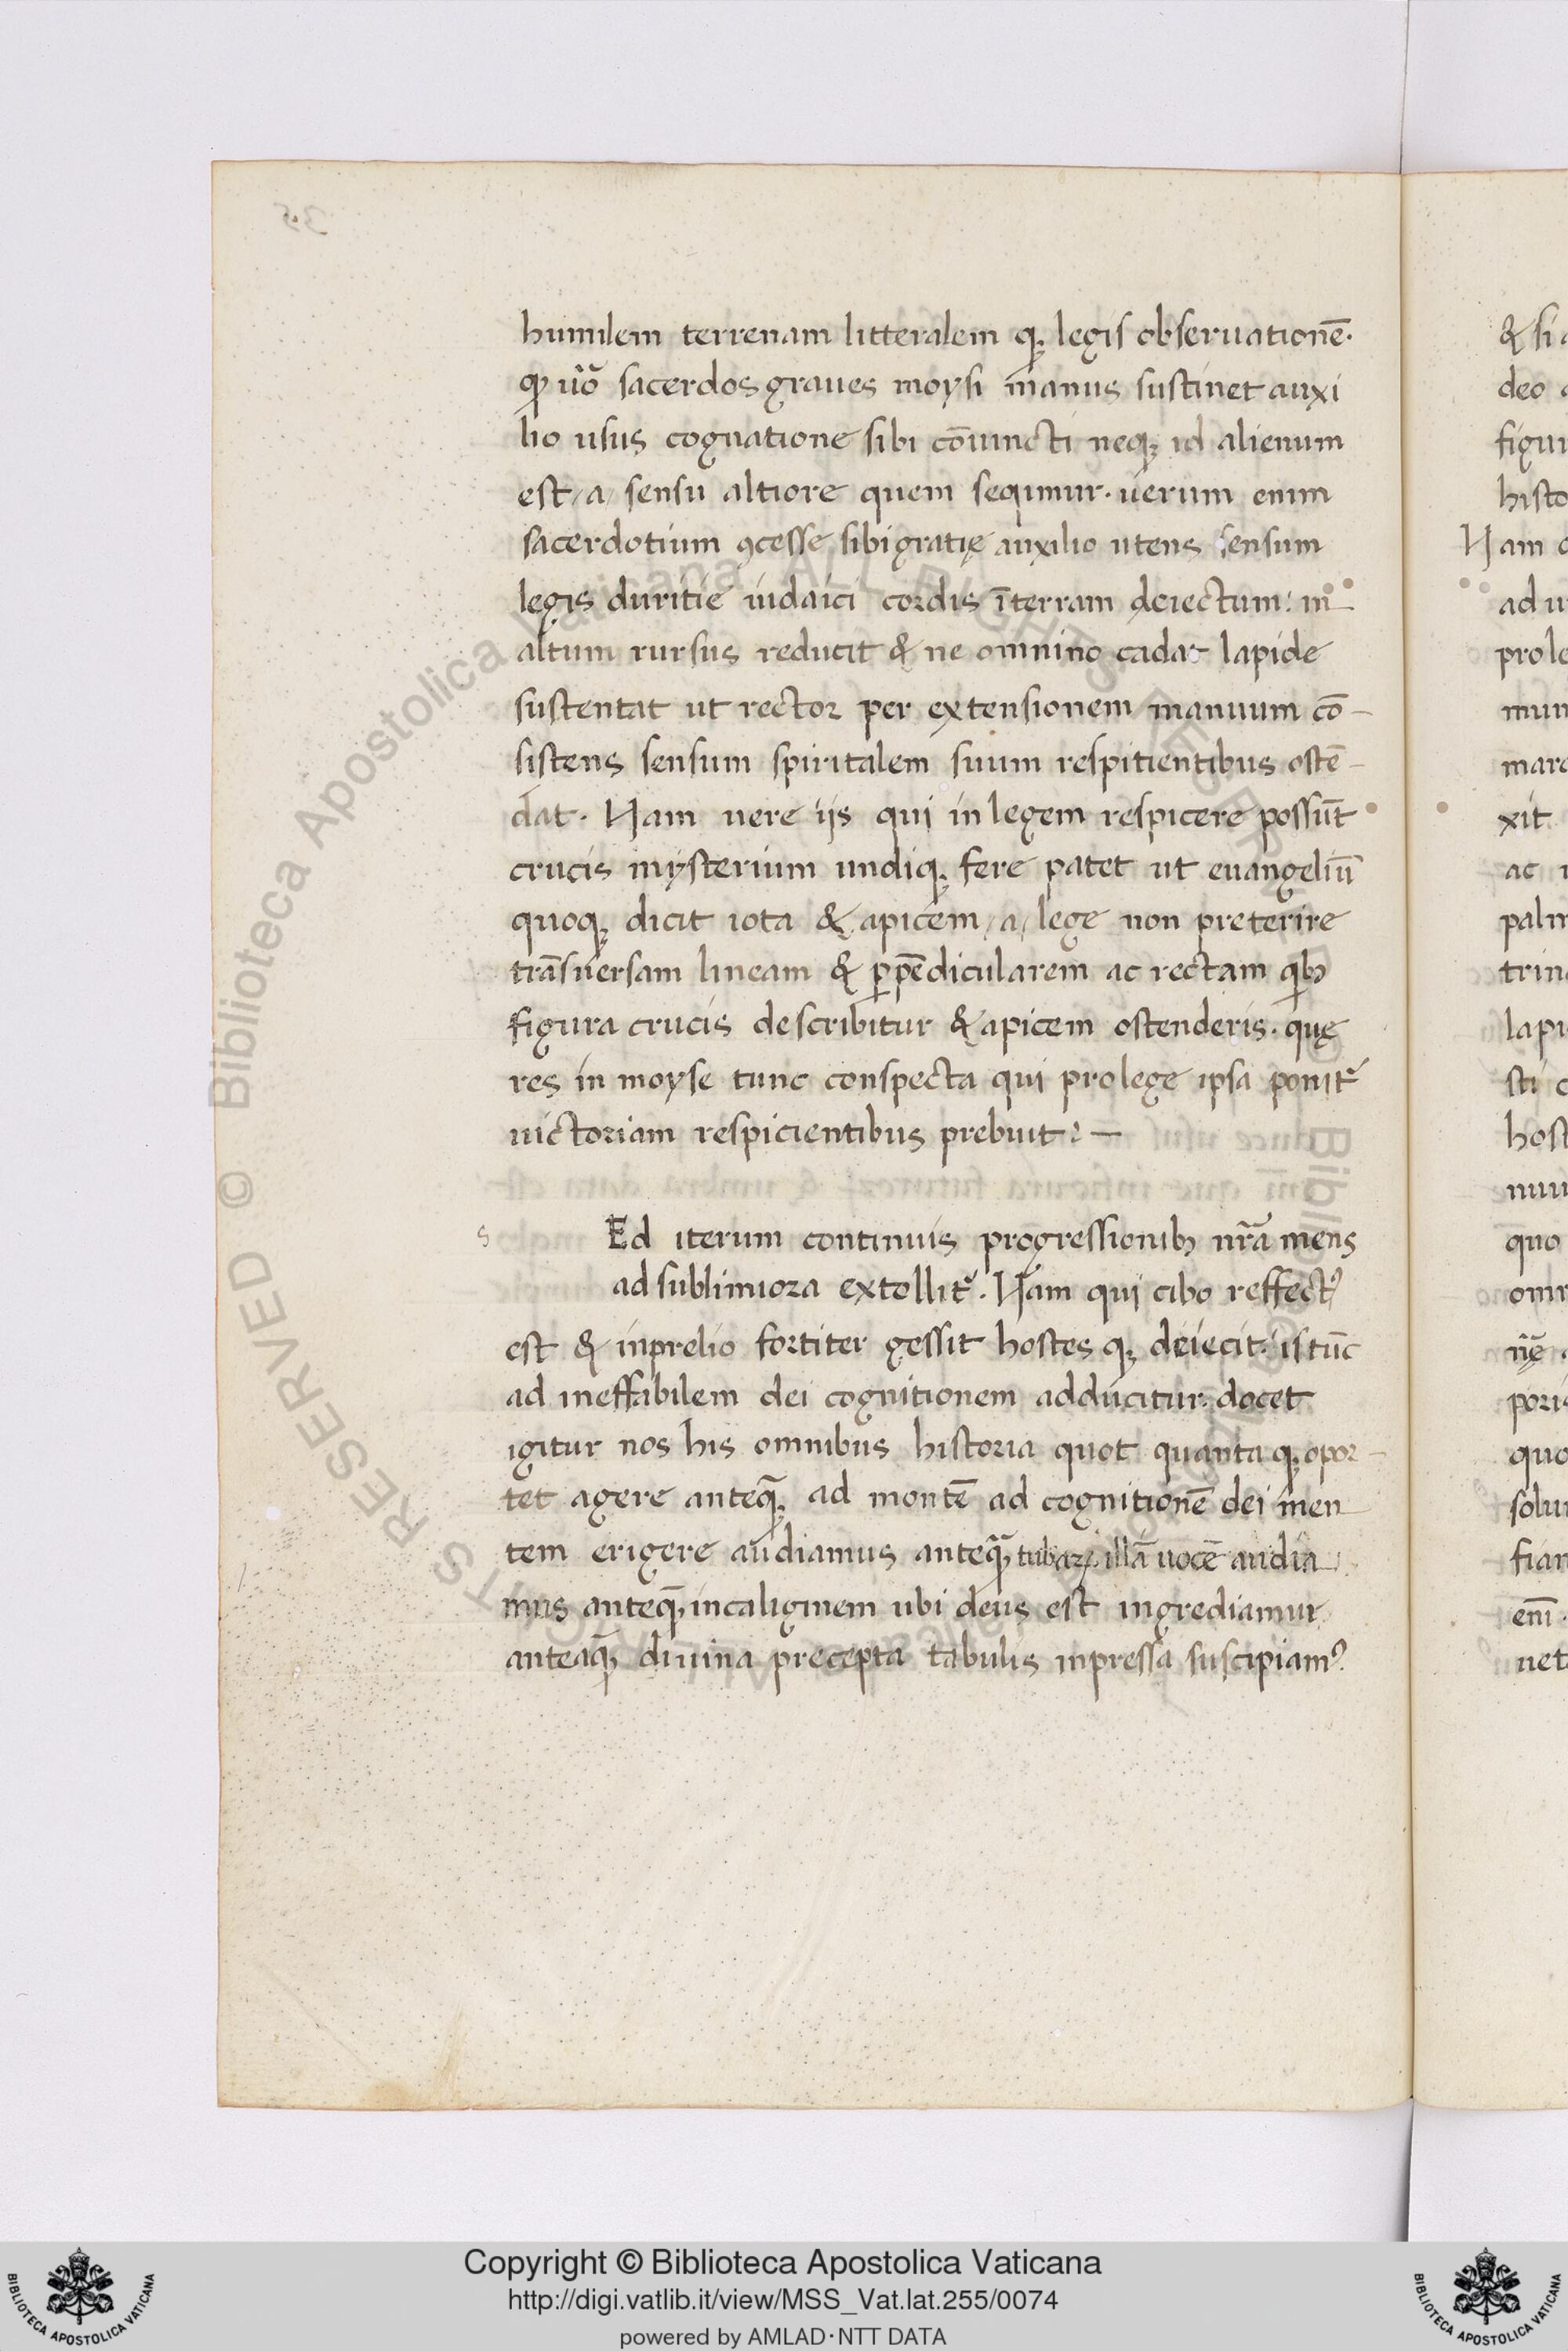 humilem terrenam litteralem q; legis obseruationē.
ꝙ uo᷑ sacerdos graues moysi manus sustinet auxi
lio usus cognatione sibi cōiuncti neq; id alienum
est /a/ sensu altiore quem sequimur. uerum enim
sacerdotium ꝯcesse sibi gratię auxilio utens sensum
legis duritie iudaici cordis ī terram deiectum: in
altum rursus reducit & ne omnino cadat lapide
sustentat ut rector per extensionem manuum cō-
sistens sensum spiritalem suum respitientibus ostē-
dat. Nam uere iis qui in legem respicere possūt
crucis mysterium undiq; fere patet ut euangeliū
quoq; dicit iota & apicem /a/ lege non preterire
trāsuersam lineam & ꝑpēdicularem ac rectam qib;
figura crucis describitur & apicem ostenderis. quę
res in moyse tunc conspecta qui pro lege ipsa ponit᷑
uictoriam respicientibus prebuit: —
s Ed iterum continuis progressionib; nr̄a mens
ad sublimiora extollit᷑. Nam qui cibo reffectꝰ
est & in prelio fortiter gessit hostes q; deiecit: is tūc
ad ineffabilem dei cognitionem adducitur. docet
igitur nos his omnibus historia quot quanta q; opor-
tet agere anteq̄; ad montē ad cognitionē dei men
tem erigere audiamus anteq̄; tubaꝝ illā uocē audia
mus anteq̄; in caliginem ubi deus est ingrediamur
anteaq̄; diuina precepta tabulis inpressa suscipiamꝰ.
& si
deo
figu
histo
Nam
ad u
prole
mun
mara
xit
ac
palm
trin
lapi
sti
host
nuu
quo
omn
nē
poris
quo
solu
fiar
enī
uet
Copyright © Biblioteca Apostolica Vaticana
http://digi.vatlib.it/view/MSS_Vat.lat.255/0074
powered by AMLAD·NTT DATA
BIBLIOTECA APOSTOLICA VATICANA
BIBLIOTECA APOSTOLICA VATICANA